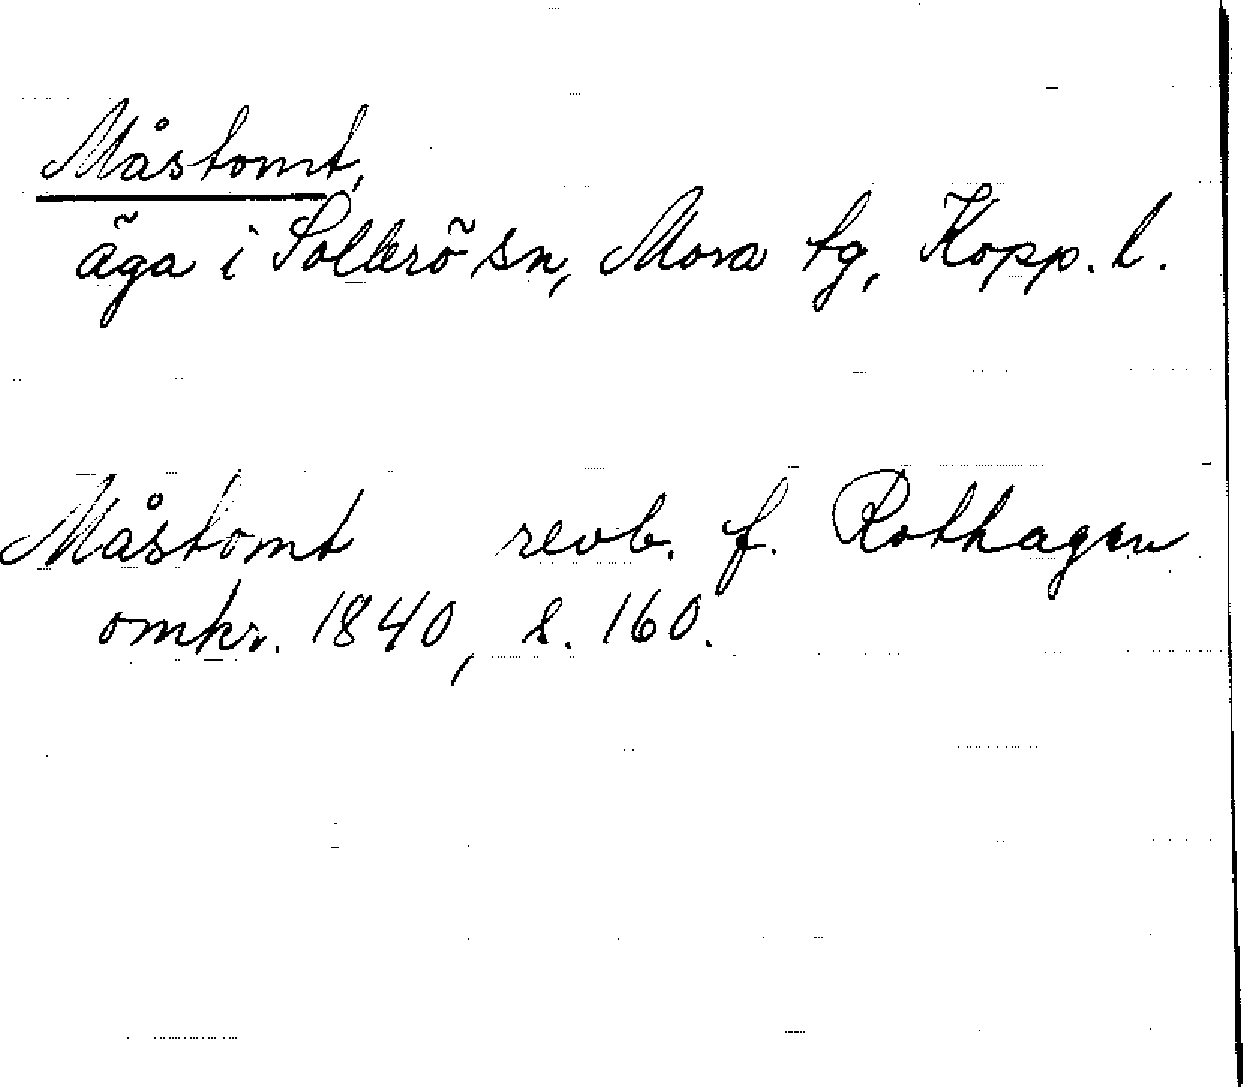 Måstomt,
äga i Sollerö sn, Mora tg, Kopp. l.
Måstomt revb. f. Rothagen
omkr. 1840, s. 160.